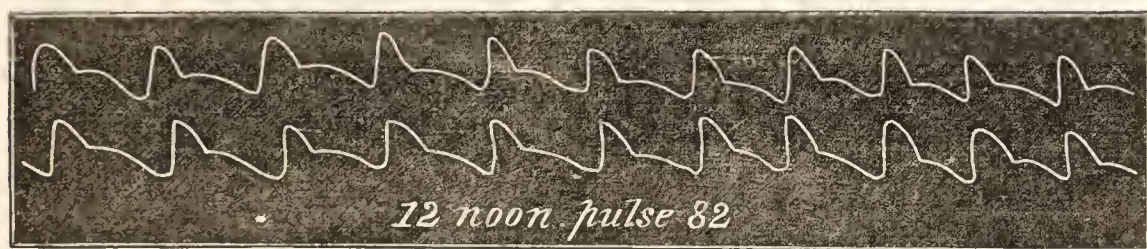 12 noon. pulse 82